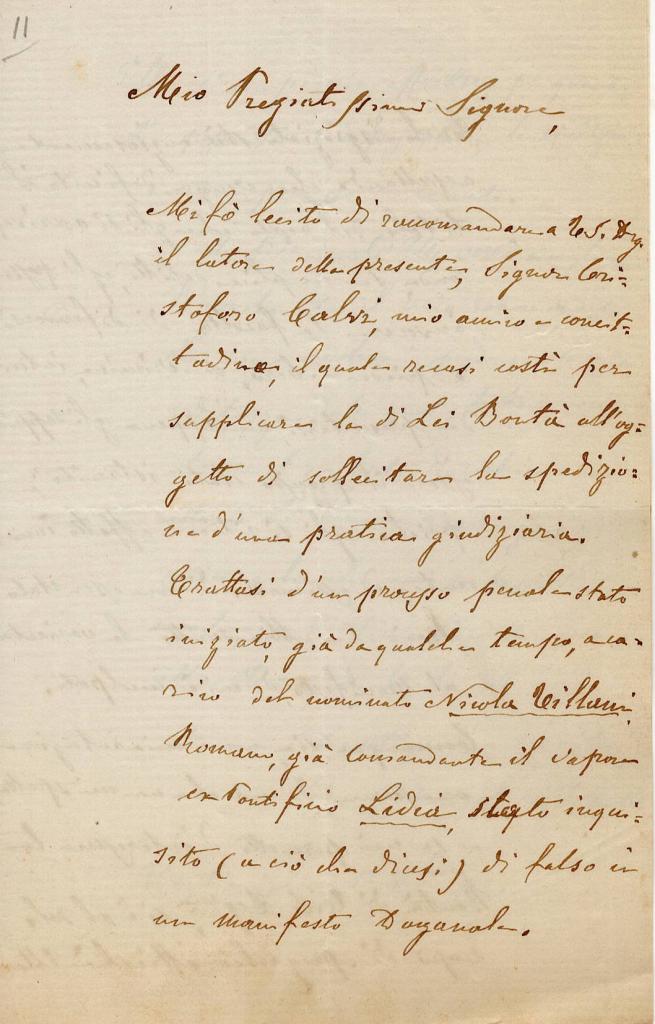 11
Mio Pregiatissimo Signore,
Mi fò lecito di raccomandare a V.S. Ill.
il latore della presente, Signor Cri-
stoforo Calvi, mio amico e concit-
tadino, il quale recasi costì per
supplicare la di Lei Bontà all'og-
getto di sollecitare la spedizio-
ne d'una pratica giudiziaria.
Trattasi d'un processo penale stato
iniziato, già da qualche tempo, a ca-
rico del nominato Nicola Villani,
Romano, già Comandante il vapore
ex Pontificio Lidia, inqui-
sito (a ciò che dicesi) di falso in
un manifesto Doganale.